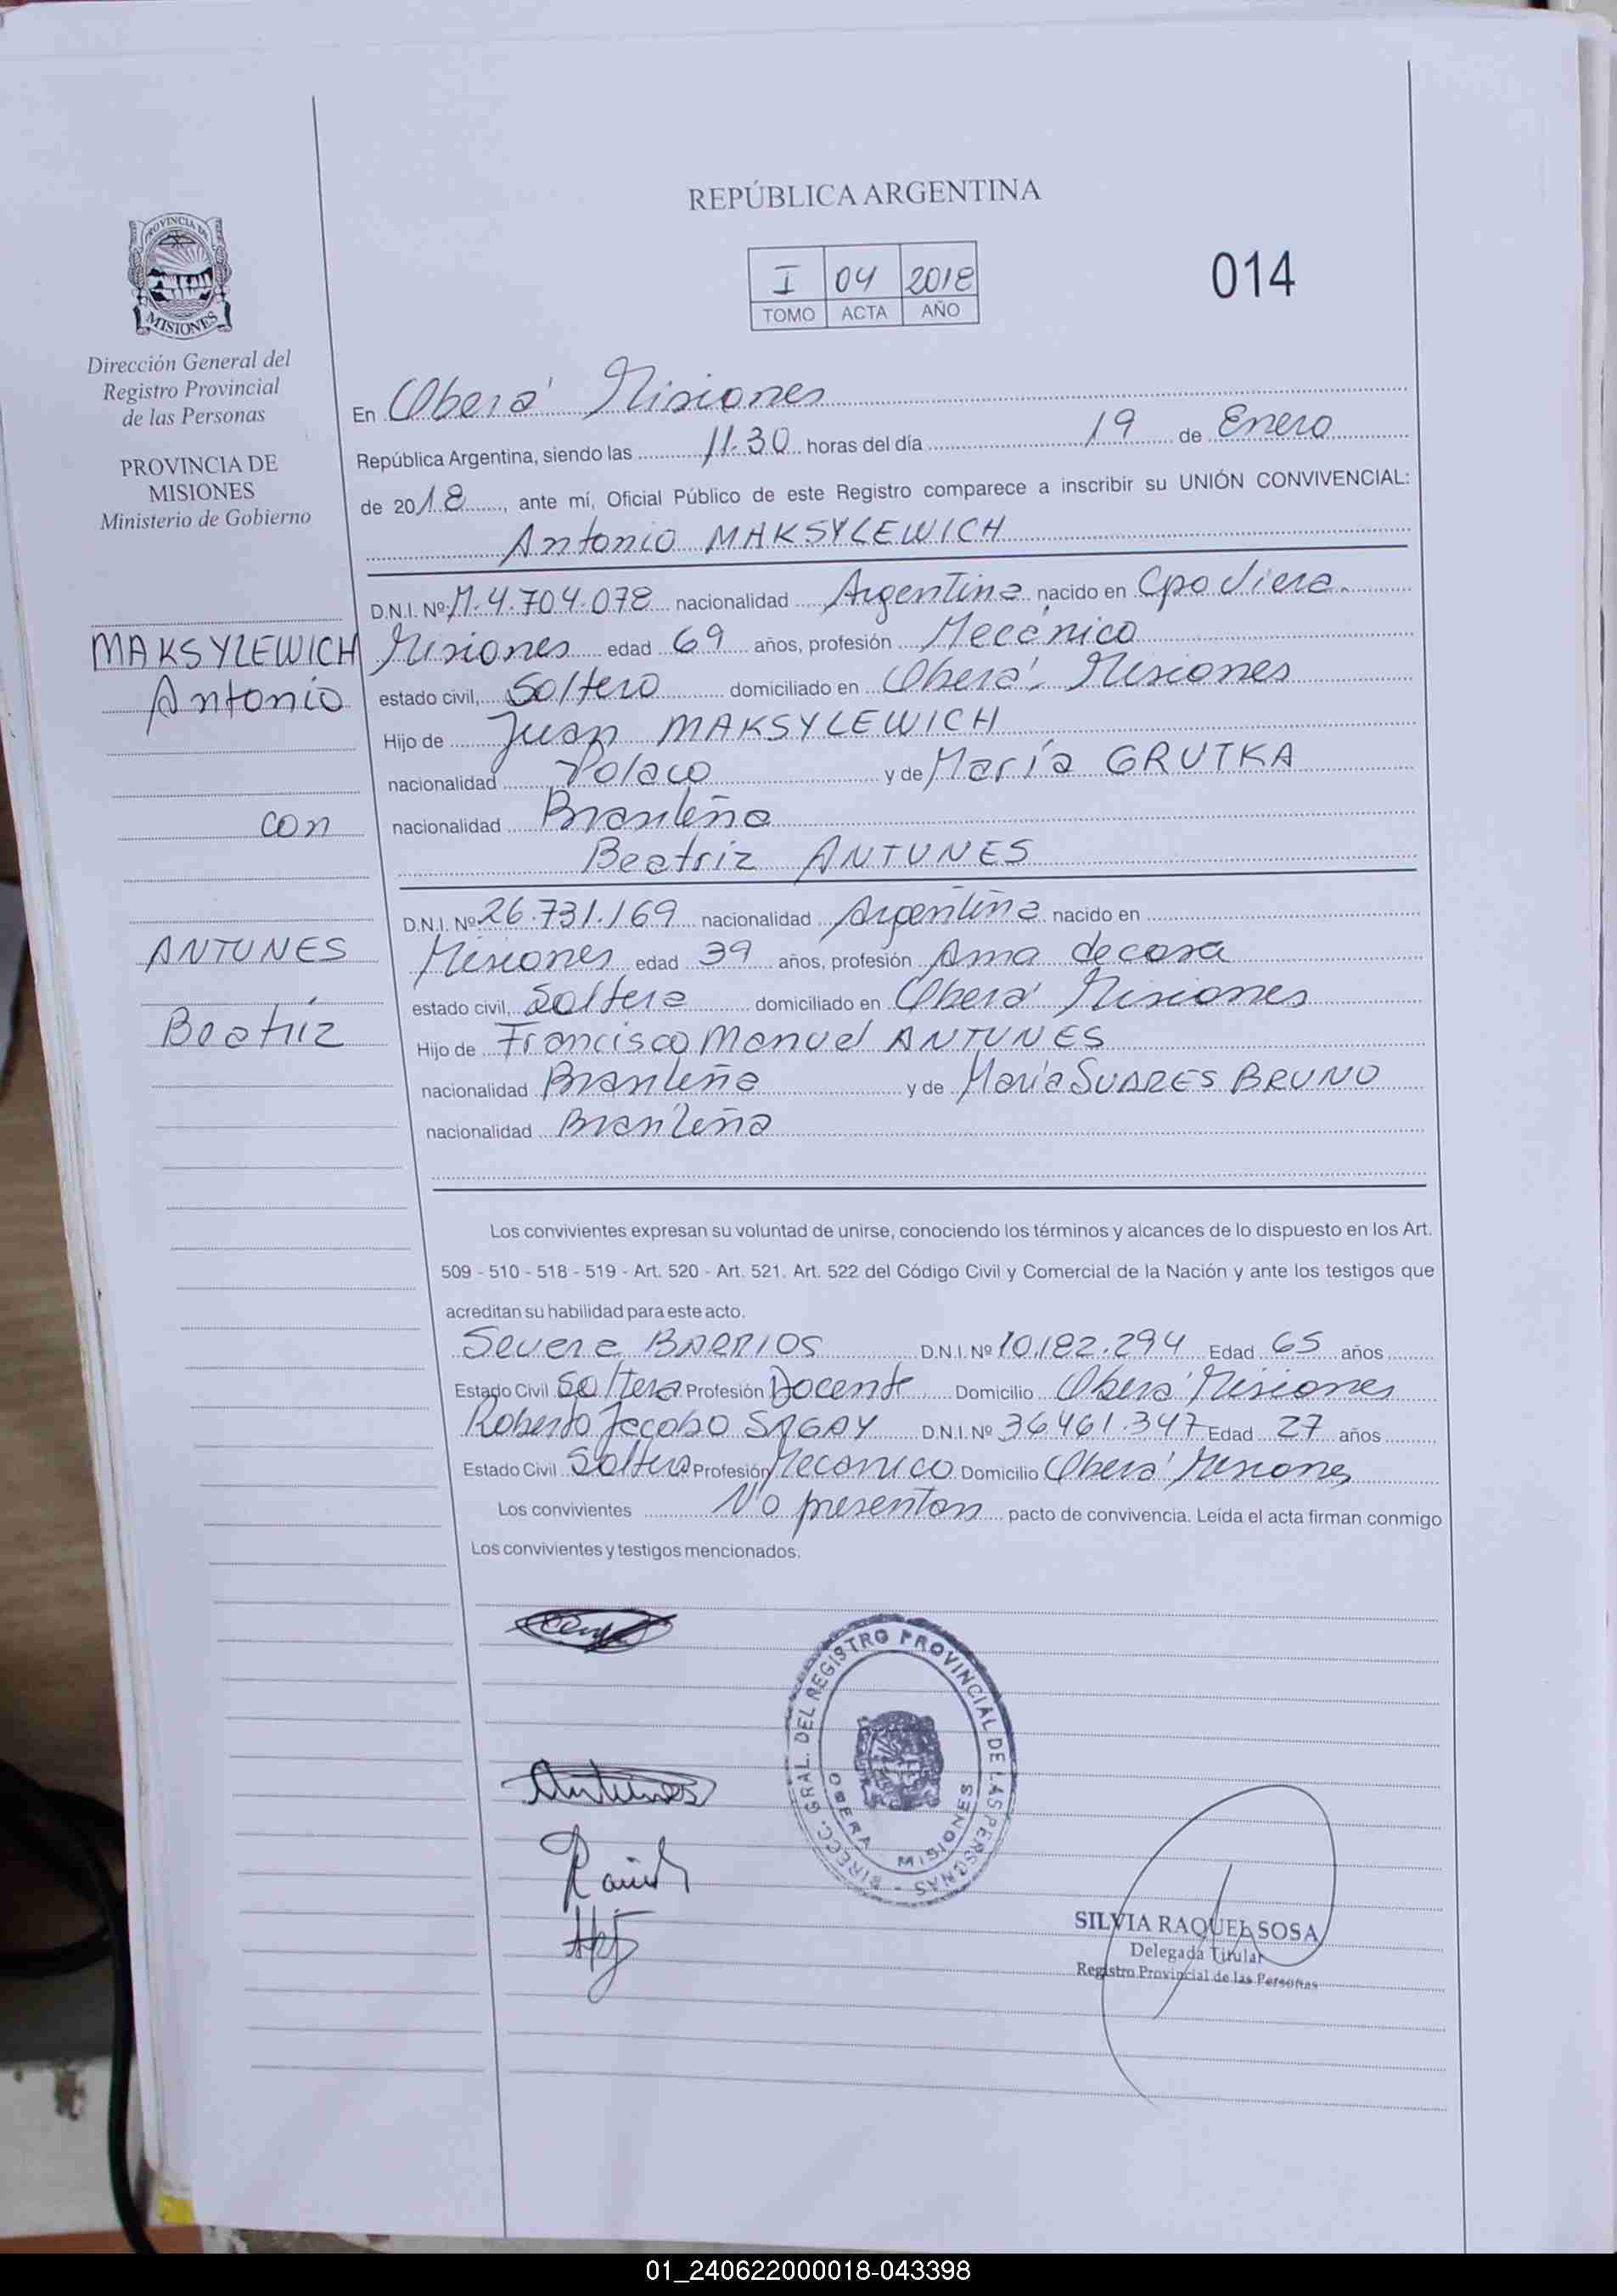 REPÚBLICA ARGENTINA
I 04 2018
TOMO ACTA AÑO
014
PROVINCIA DE
MISIONES
Dirección General del
Registro Provincial
de las Personas
PROVINCIA DE
MISIONES
Ministerio de Gobierno
MAKSYLEWICH
Antonio
con
ANTUNES
Beatríz
En Oberá Misiones
República Argentina, siendo las 11.30 horas del día 19 de Enero
de 2018, ante mí, Oficial Público de este Registro comparece a inscribir su UNIÓN CONVIVENCIAL:
Antonio MAKSYLEWICH
D.N.I. Nº M.4.704.078 nacionalidad Argentina nacido en Cpo Viera.
Misiones edad 69 años, profesión Mecánico
estado civil, Soltero domiciliado en Oberá Misiones
Hijo de Juan MAKSYLEWICH
nacionalidad Polaco y de María GRUTKA
nacionalidad Brasileña
Beatriz ANTUNES
D.N.I. Nº 26.731.169 nacionalidad Argentina nacido en
Misiones edad 39 años, profesión Ama de casa
estado civil, Soltera domiciliado en Oberá Misiones
Hijo de Francisco Manuel ANTUNES
nacionalidad Brasileña y de María SUARES BRUNO
nacionalidad Brasileña
Los convivientes expresan su voluntad de unirse, conociendo los términos y alcances de lo dispuesto en los Art.
509 - 510 - 518 - 519 - Art. 520 - Art. 521. Art. 522 del Código Civil y Comercial de la Nación y ante los testigos que
acreditan su habilidad para este acto.
Severa BARRIOS D.N.I. Nº 10.182.294 Edad 65 años
Estado Civil Soltera Profesión Docente Domicilio Oberá Misiones
Roberto Jacobo SAGAY D.N.I. Nº 36.461.347 Edad 27 años
Estado Civil Soltero Profesión Mecanico Domicilio Oberá Misiones
Los convivientes No presentan pacto de convivencia. Leída el acta firman conmigo
Los convivientes y testigos mencionados.
Antunes
DIRECC. GRAL. DEL REGISTRO PROVINCIAL DE LAS PERSONAS -
OBERA MISIONES
SILVIA RAQUEL SOSA
Delegada Titular
Registro Provincial de las Personas
01_240622000018-043398